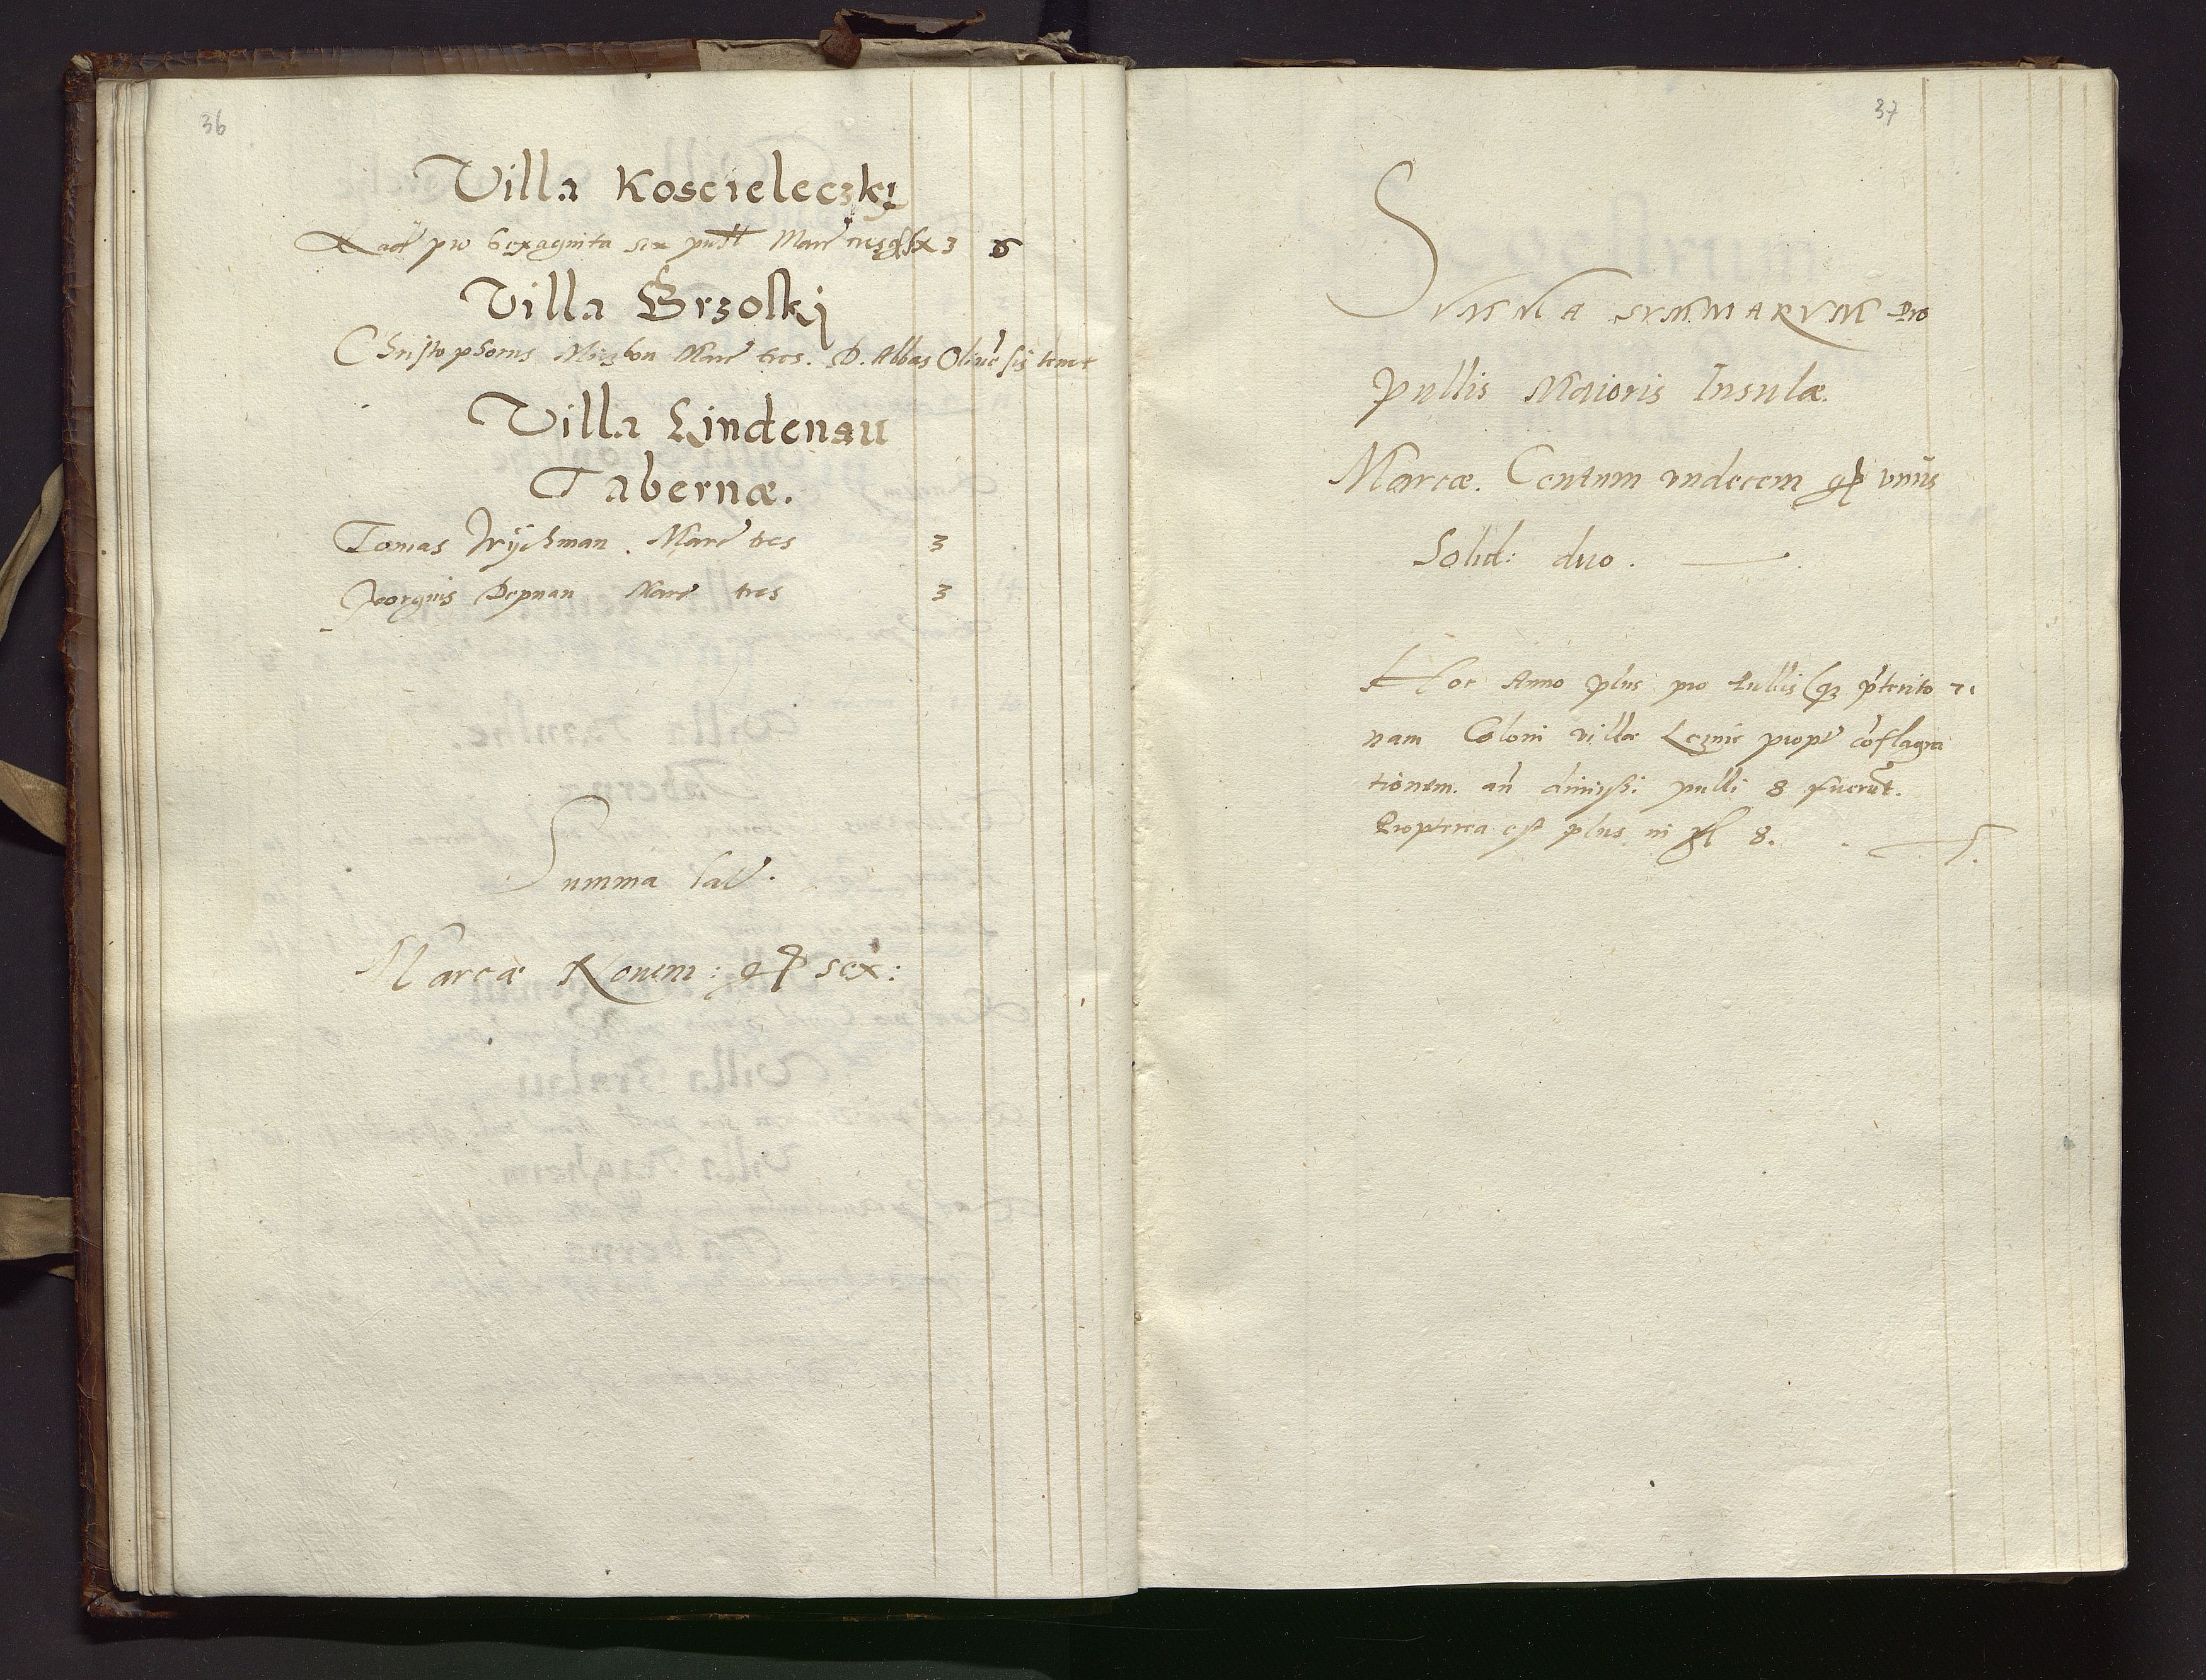 36
Villa Koscieleczkj
pro Sexaginta sex pull Marc tres gs sex 3 6
Villa Brzoskj
Christophorus Marc tres. D. Abbas Oliuesis tenet
Villa Lindenau
Tabernæ.
Tomas Wychman. Marc tres 3
Georgius Depnan Marc tres 3
Summa lat.
Marcæ Nouem: gs sex:
37
SVMMA SVMMARVM Pro
pullis Maioris Insulæ.
Marcæ. Centum vndecem gs vnus
Solid: duo.
Hoc Anno plus pro pullis (qz pterito
nam Coloni villæ Leznic propt coflagra
tionem. dimissi pulli 8 fuerut.
Propterea est plus in gs 8.